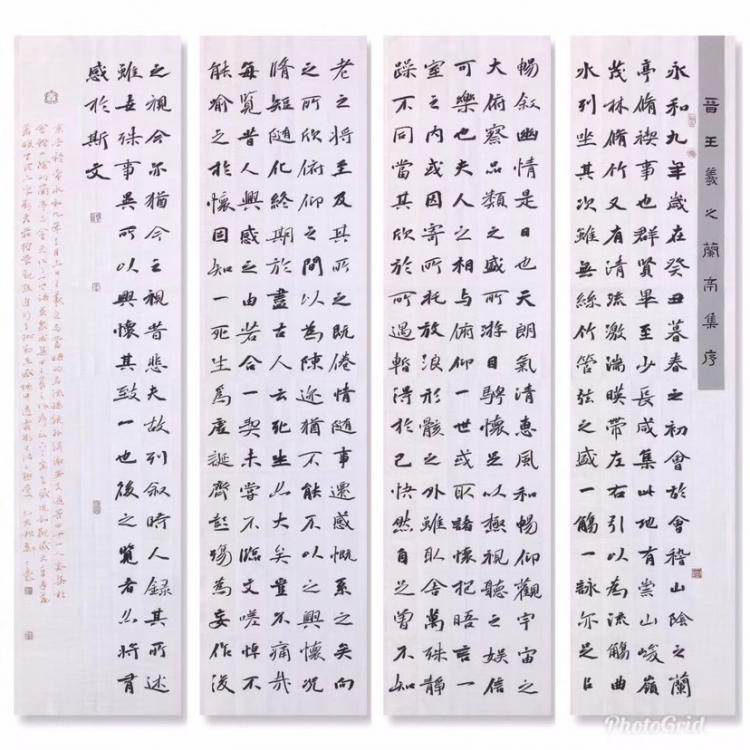 晉王羲之蘭亭集序
永和九年歲在癸丑暮春之初會於會稽山陰之蘭
亭脩禊事也群賢畢至少長咸集此地有崇山峻嶺
茂林脩竹又有清流激湍暎帶左右引以為流觴曲
水列坐其次雖無絲竹管弦之盛一觴一詠亦足以
暢敘幽情是日也天朗氣清惠風和暢仰觀宇宙之
大俯察品類之盛所游目騁懷足以極視聽之娛信
可樂也夫人之相与俯仰一世或取諸懷抱晤言一
室之內或因寄所託放浪形骸之外雖取舍萬殊靜
躁不同當其欣於所遇暫得於己快然自足曾不知
老之將至及其所之既倦情隨事遷感慨系之矣向
之所欣俯仰之間以為陳迹猶不能不以之興懷況
脩短隨化終期於盡古人云死生亦大矣豈不痛哉
每覽昔人興感之由若合一契未嘗不臨文嗟悼不
能喻之於懷固知一死生為虛誕齊彭殤為妄作後
之視今亦猶今之視昔悲夫故列敘時人錄其所述
雖世殊事異所以興懷其致一也後之覽者亦將有
感於斯文
PhotoGrid